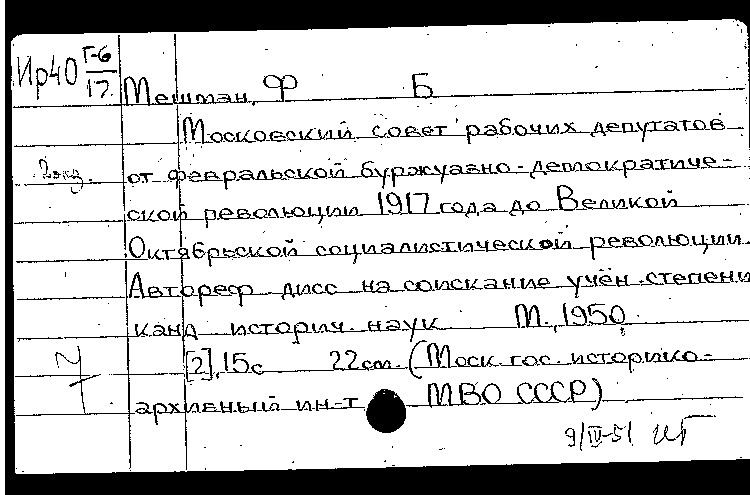 Ир40 Г-6/17
Мешман, Ф Б
Московский совет рабочих депутатов
2экз. от февральской буржуазно-демократиче-
ской революции 1917 года до Великой
Октябрьской социалистической революции.
Автореф. дисс на соискание учён. степени
канд историч. наук М., 1950.
[2], 15с 22см. (Моск. гос. историко-
архивный ин-т МВО СССР)
9/IV-51 ИГ